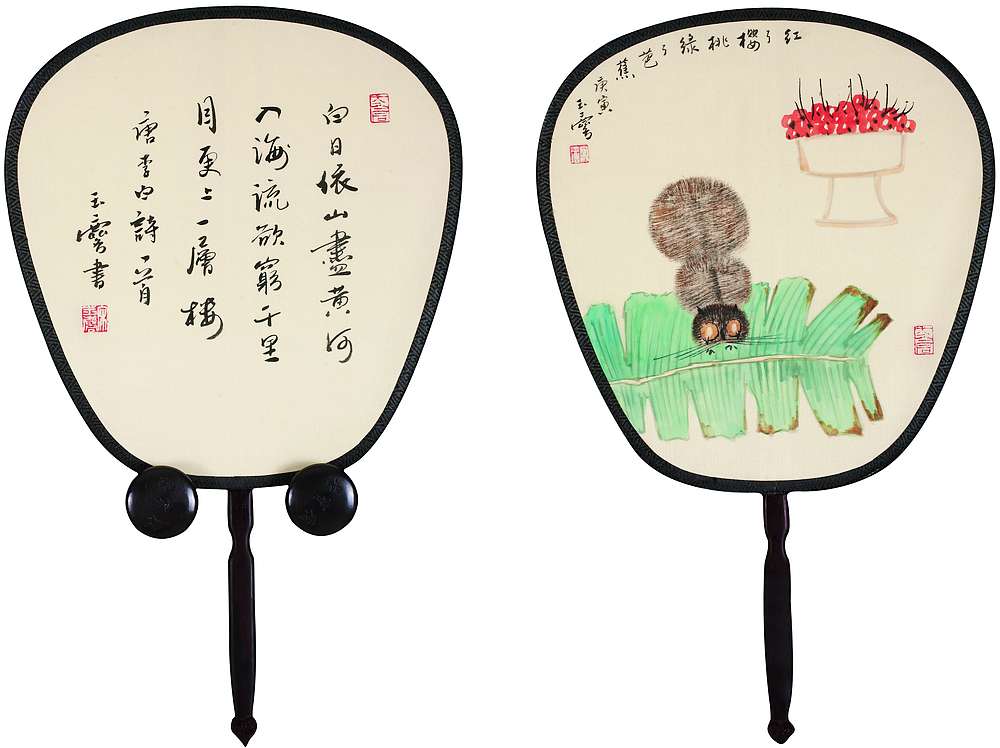 白日依山盡黃河
入海流欲窮千里
目更上一層樓
唐李白詩一首
玉書
紅了櫻桃綠了芭蕉
庚寅
玉